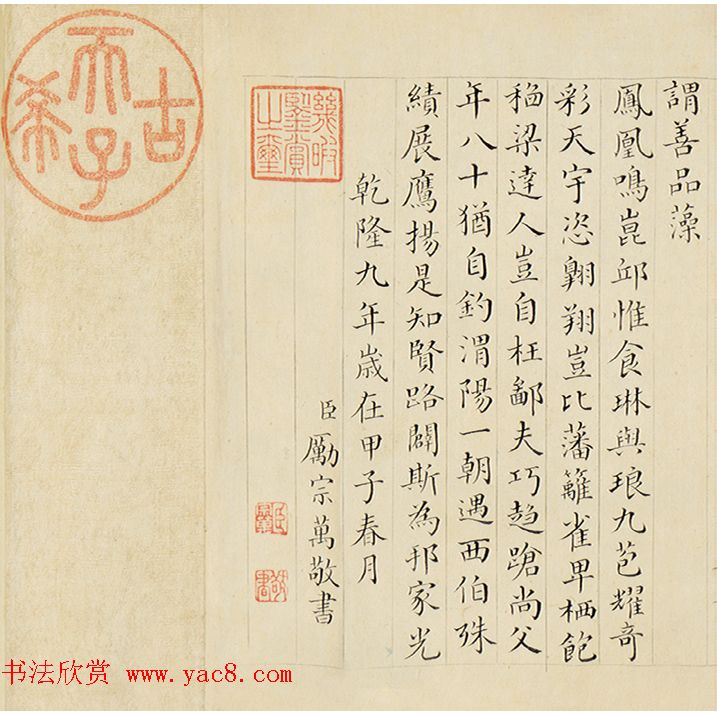 謂善品藻
鳳凰鳴崑邱惟食琳與琅九苞耀奇
彩天宇恣翱翔豈比藩籬雀卑栖飽
稻梁達人豈自枉鄙夫巧趋蹌尚父
年八十猶自釣渭陽一朝遇西伯殊
績展鷹揚是知賢路闢斯為邦家光
乾隆九年歲在甲子春月
臣勵宗萬敬書
幾暇鑒賞之璽
古希天子
书法欣赏 www.yac8.com